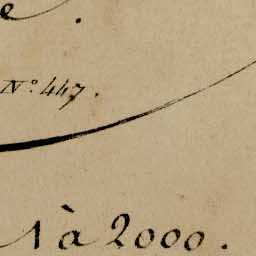 e.
N° 447.
1 à 2000.